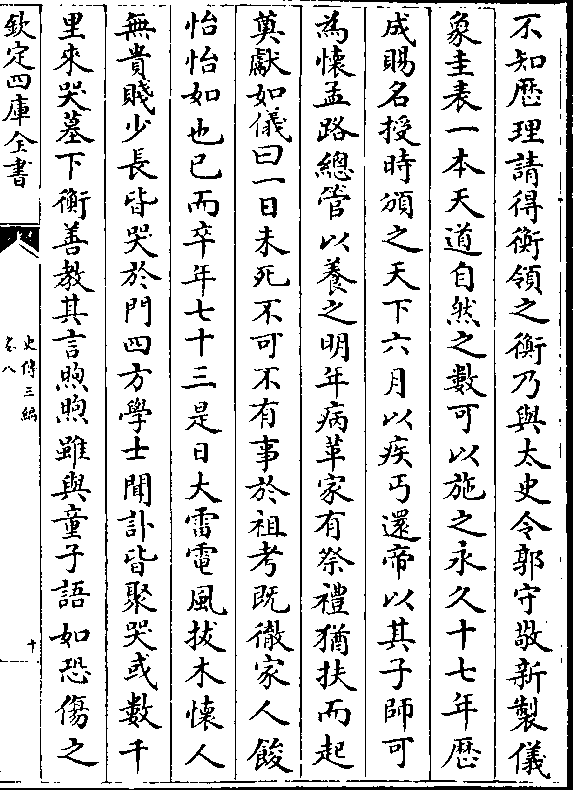 不知厯理請得衡領之衡乃與太史令郭守敬新製儀
象圭表一本天道自然之數可以施之永久十七年厯
成賜名授時頒之天下六月以疾丐還帝以其子師可
為懷孟路總管以養之明年病革家有祭禮猶扶而起
奠獻如儀曰一日未死不可不有事於祖考既徹家人餕
怡怡如也已而卒年七十三是日大雷電風拔木懷人
無貴賤少長皆哭於門四方學士聞訃皆聚哭或數千
里來哭墓下衡善教其言煦煦雖與童子語如恐傷之
欽定四庫全書
史傳三編
卷八
十